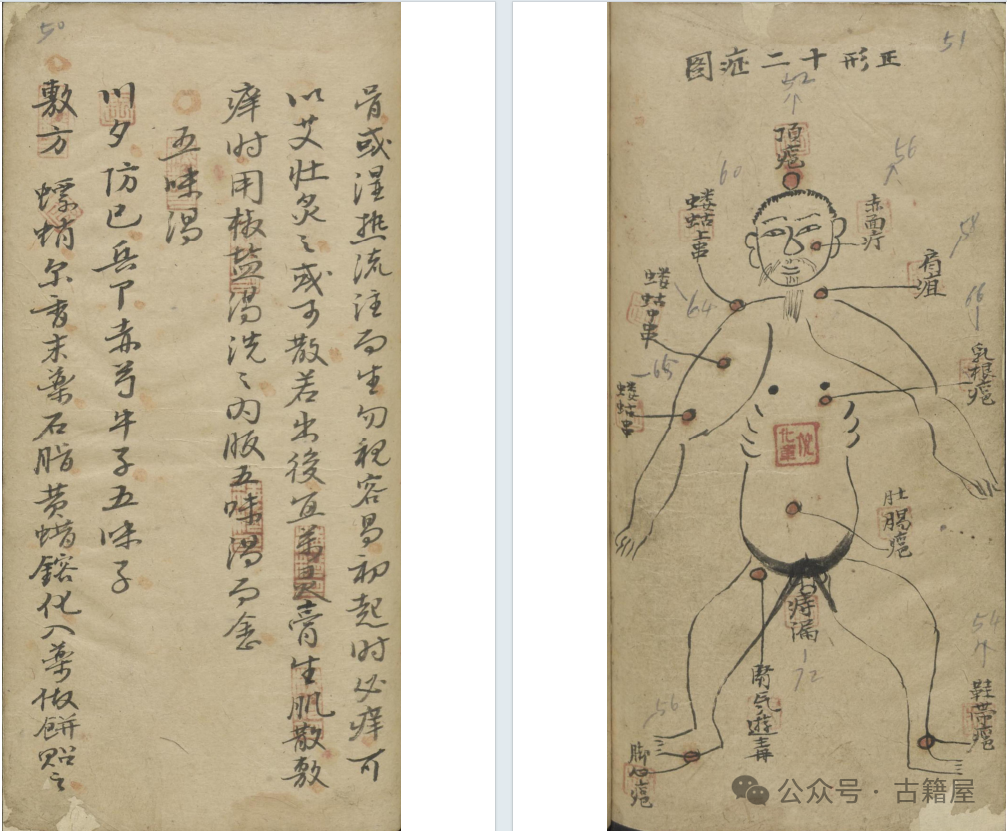 50
骨或湿热流注而生勿视容易初起时必痒可
以艾壮灸之或可散若出後宜万灵膏生肌散敷
痒时用椒盐湯洗之内服五味湯而愈
五味湯
川夕防已兵下赤芍牛子五味子
敷方 螵蛸尔香末藥石脂黄蜡鎔化入藥做餅贴之
51
正形十二症图
52
頂疮
60
56
蝼蛄上串
赤面疔
58
肩疽
蝼蛄中串
64
66
乳根疮
65
蝼蛄串
化軍
肚腸疮
痔漏
72
54
腎氣遊毒
鞋帶疮
56
脚心疮
公众号·古籍屋